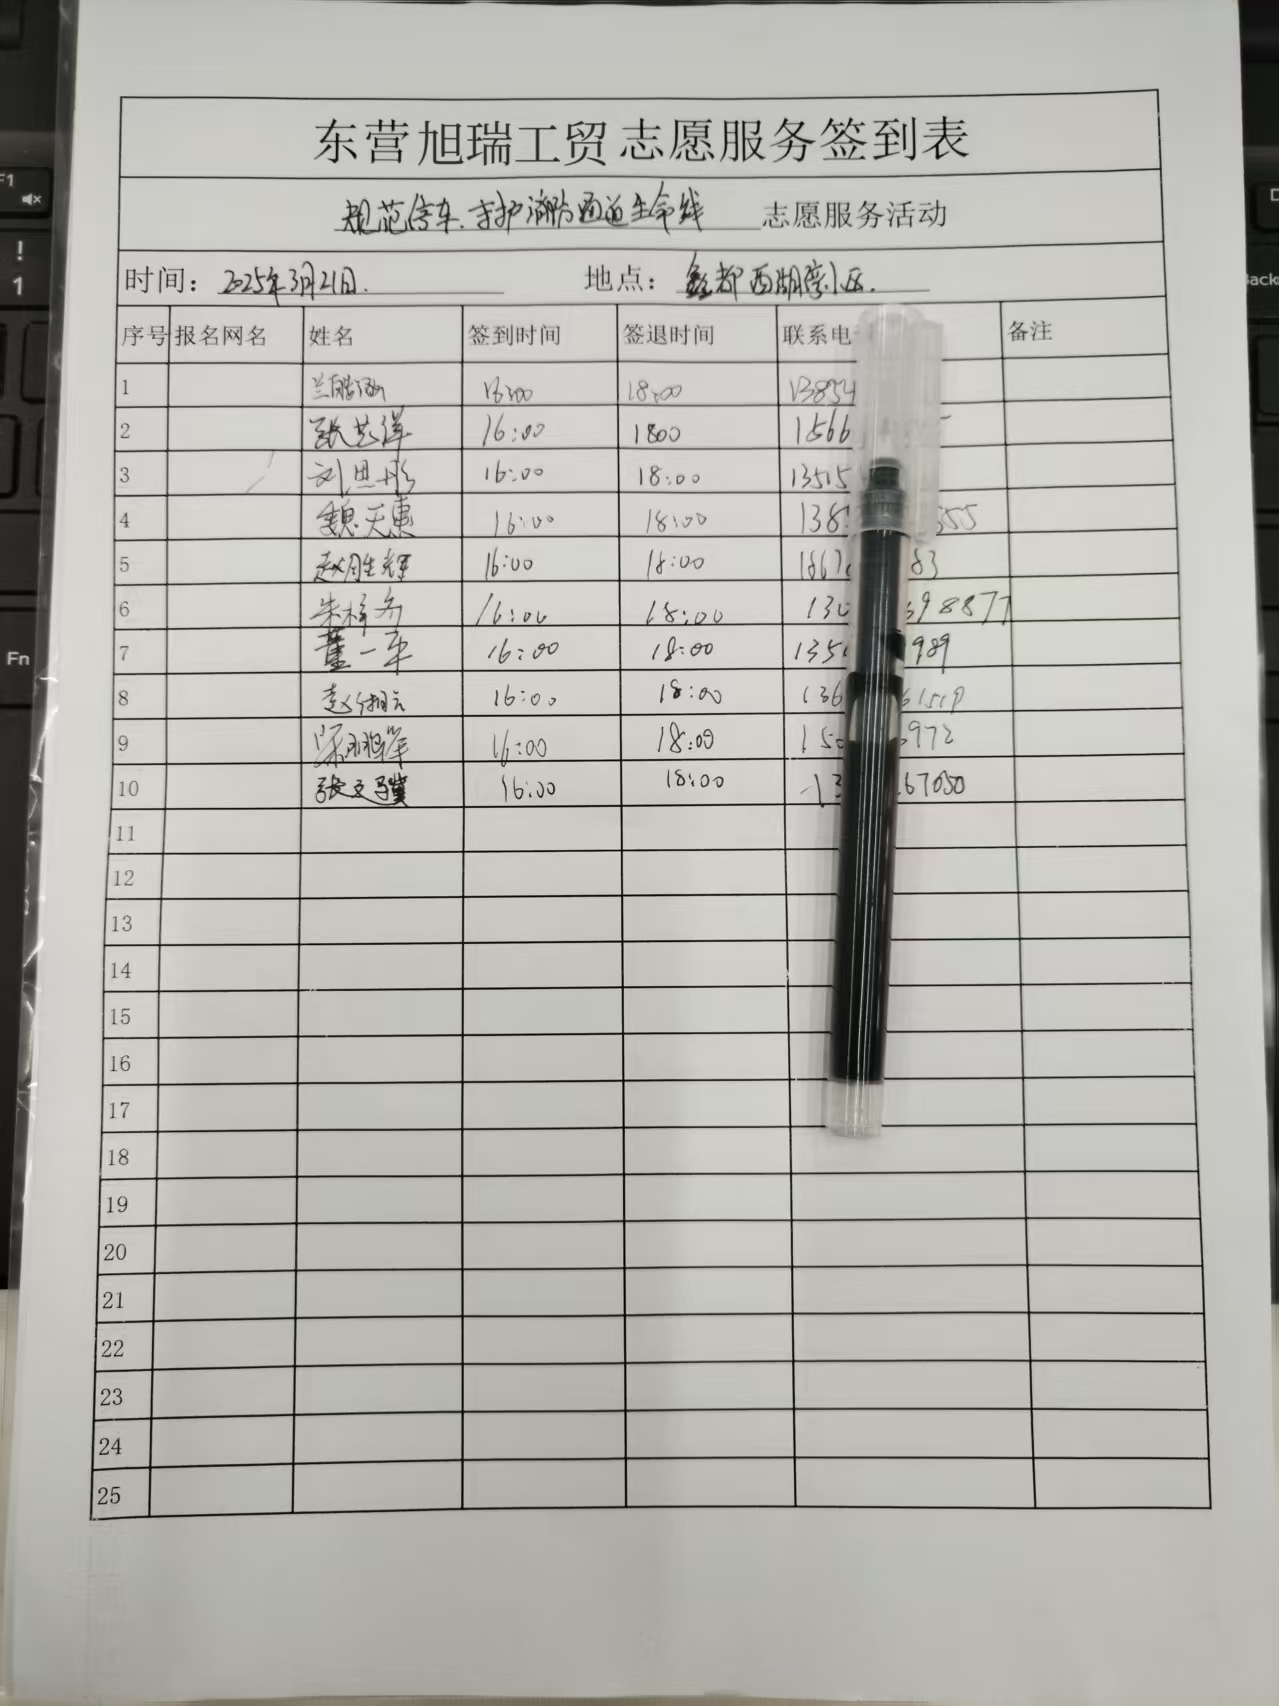 东营旭瑞工贸志愿服务签到表
规范停车、守护消防通道生命线 志愿服务活动
时间：2025年3月21日. 地点： 都西湖 小区.
序号 报名网名 姓名 签到时间 签退时间 联系电 备注
1 18:00 13854
2 张艺洋 16:00 1800 1566
3 刘思彤 16:00 18:00 13515
4 魏天惠 16:00 18:00 138 555
5 赵胜辉 16:00 18:00 1867 83
6 朱梓 16:00 18:00 130 398877
7 董一平 16:00 18:00 135 989
8 赵 16:00 18:00 136 61519
9 16:00 18:00 150 972
10 张文骥 16:00 18:00 13 67050
11
12
13
14
15
16
17
18
19
20
21
22
23
24
25
F1
!
1
Fn
Back